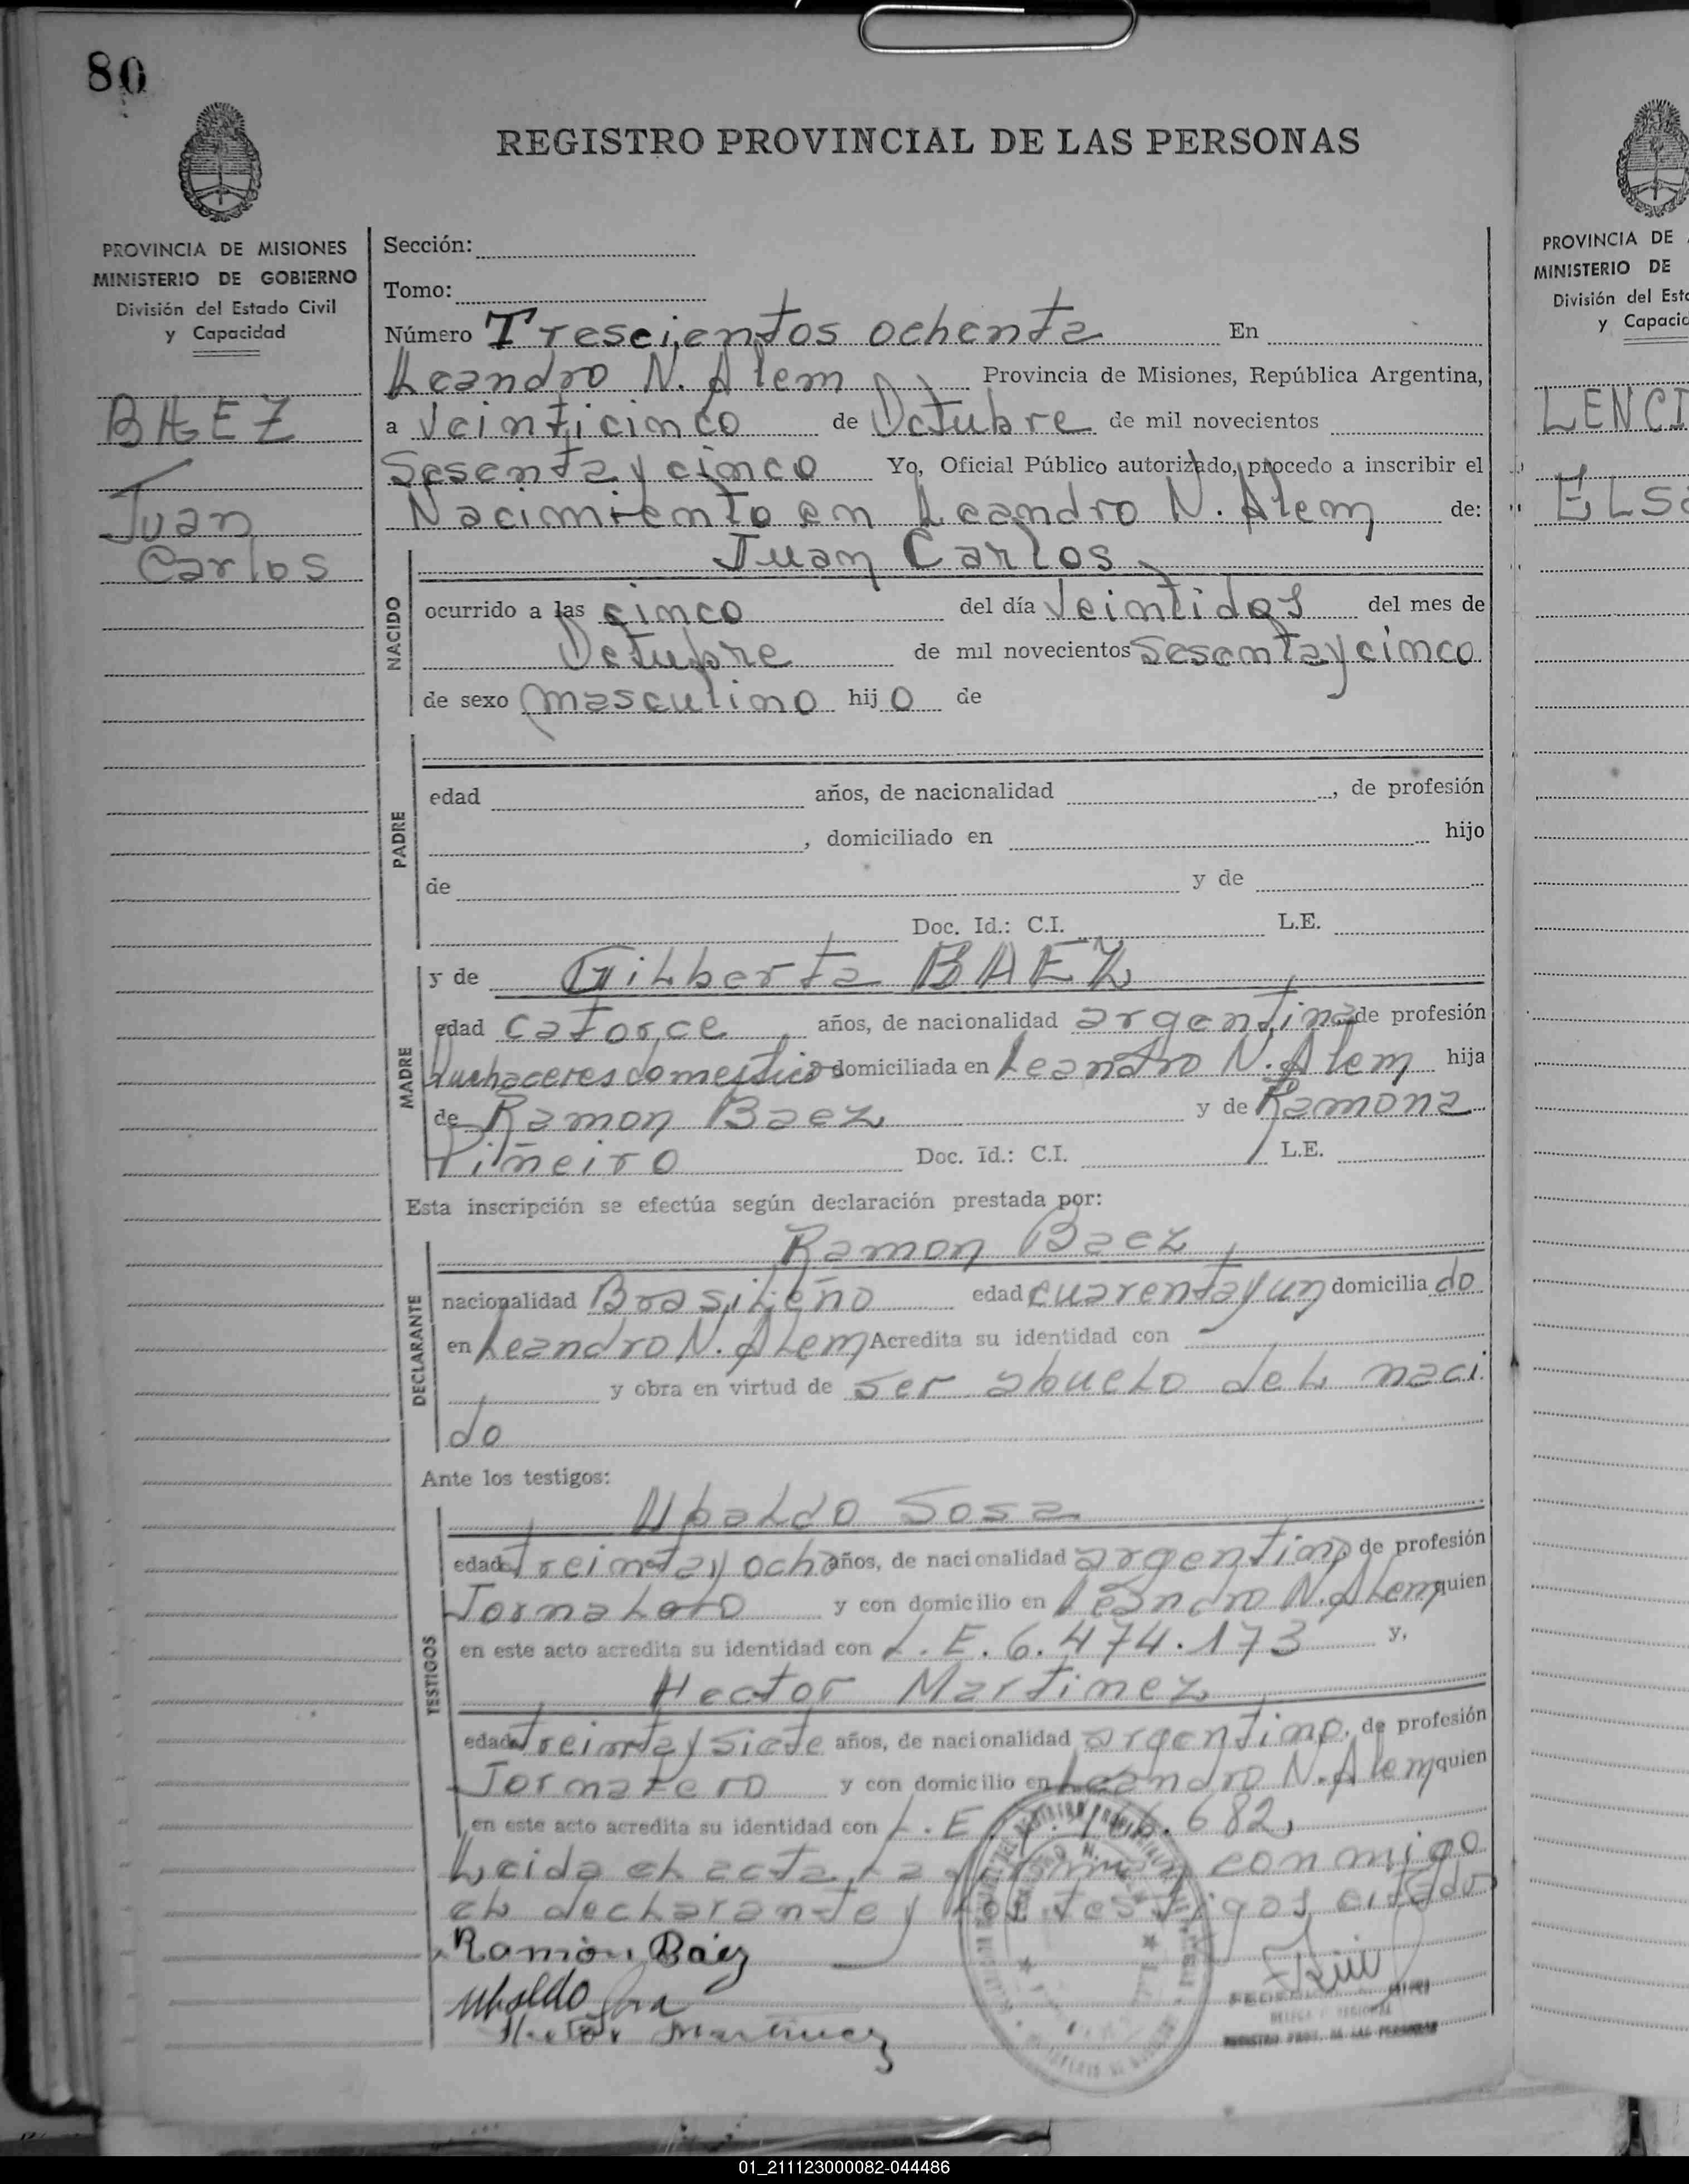 80
REGISTRO PROVINCIAL DE LAS PERSONAS
PROVINCIA DE MISIONES
MINISTERIO DE GOBIERNO
División del Estado Civil
y Capacidad
BAEZ
Juan
Carlos
Sección:
Tomo:
Número Trescientos ochenta En
Leandro N. Alem Provincia de Misiones, República Argentina,
a veinticinco de Octubre de mil novecientos
Sesenta y cinco Yo, Oficial Público autorizado, procedo a inscribir el
Nacimiento en Leandro N. Alem de:
NACIDO
Juan Carlos
ocurrido a las cinco del día Veintidos del mes de
Octubre de mil novecientos Sesenta y cinco
de sexo masculino hijo de
PADRE
edad años, de nacionalidad , de profesión
, domiciliado en hijo
de y de
Doc. Id.: C.I. L.E.
MADRE
y de Gilberta BAEZ
edad catorce años, de nacionalidad argentina de profesión
Quehaceres domesticos domiciliada en Leandro N. Alem hija
de Ramon Baez y de Ramona
Piñeiro Doc. Id.: C.I. L.E.
Esta inscripción se efectúa según declaración prestada por:
DECLARANTE
Ramon Baez
nacionalidad Brasileño edad cuarenta y un domiciliado
en Leandro N. Alem Acredita su identidad con
y obra en virtud de ser abuelo del naci
do
Ante los testigos:
TESTIGOS
Ubaldo Sosa
edad treinta y ocho años, de nacionalidad argentino de profesión
Jornalero y con domicilio en Leandro N. Alem quien
en este acto acredita su identidad con L.E. 6.474.173 y,
Hector Martinez
edad treinta y siete años, de nacionalidad argentino, de profesión
Jornalero y con domicilio en Leandro N. Alem quien
en este acto acredita su identidad con L.E. 682,
Leida el acta, la conmigo
el declarante y los testigos citados
Ramón Báez
Ubaldo Sosa
Hector Martinez
REGISTRO PROV. DE LAS PERSONAS
PROVINCIA DE
MINISTERIO DE
División del Est
y Capacid
LENCI
ELSA
01_211123000082-044486